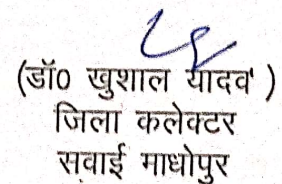 (डॉ0 खुशाल यादव )
जिला कलेक्टर
सवाई माधोपुर